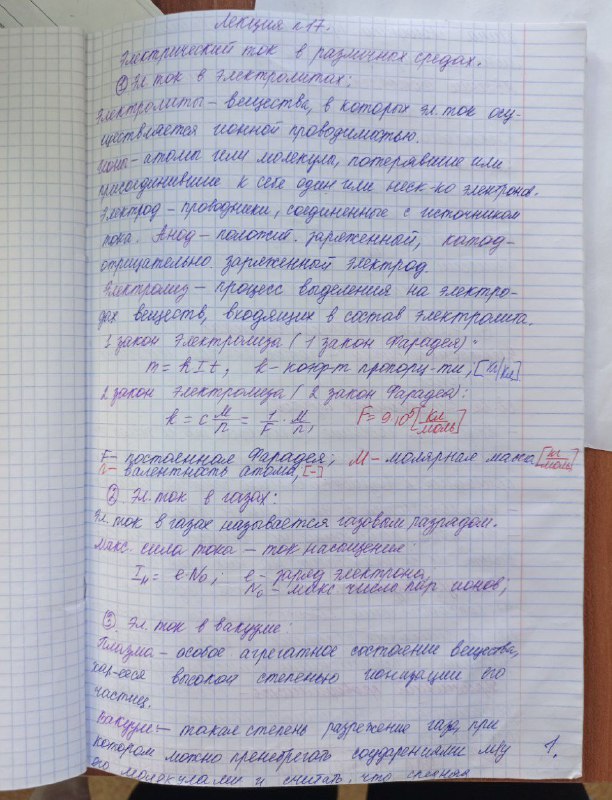 Лекция n 17.
Электрический ток в различных средах.
① Эл. ток в электролитах:
Электролиты – вещества, в которых эл. ток осу-
ществляется ионной проводимостью.
Ионы – атомы или молекулы, потерявшие или
присоединившие к себе один или неск-ко электронов.
Электрод – проводники, соединенные с источником
тока. Анод – положит. заряженный, катод –
отрицательно заряженный электрод.
Электролиз – процесс выделения на электро-
дах веществ, входящих в состав электролита.
1 закон электролиза (1 закон Фарадея):
m = kIt, k – коэф-т пропорц-ти, [кг/кл]
2 закон электролиза (2 закон Фарадея):
k = c M/n = 1/F · M/n, F = 9, [кл/моль]
F – постоянная Фарадея; M – молярная масса [кг/моль]
n – валентность атома, [-]
② Эл. ток в газах:
Эл. ток в газах называется газовым разрядом.
Макс. сила тока – ток насыщения:
Iн = e·N₀; e – заряд электрона;
N₀ – макс числа пар ионов;
③ Эл. ток в вакууме:
Плазма – особое агрегатное состояние вещества,
хар-ееся высокой степенью ионизации его
частиц.
Вакуум – такая степень разрежение газа, при
котором можно пренебрегать соударениями м/у 1.
его молекулами и считать, что средняя